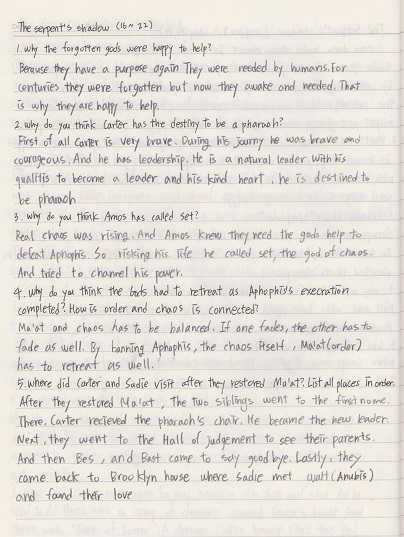 The serpent's shadow (16~22)
1. why the forgotten gods were happy to help?
Because they have a purpose again They were needed by humans. For
centuries they were forgotten but now they awake and needed. That
is why they are happy to help.
2. why do you think Carter has the destiny to be a pharaoh?
First of all Carter is very brave. During his journy he was brave and
courageous. And he has leadership. He is a natural leader. With his
qualitis to become a leader and his kind heart, he is destined to
be pharaoh
3. why do you think Amos has called set?
Real chaos was rising. And Amos knew they need the gods help to
defeat Aphophis. So risking his life he called set, the god of chaos.
And tried to channel his power.
4. why do you think the Gods had to retreat as Aphophis's execration
completed? How is order and chaos is connected?
Ma'at and chaos has to be balanced. If one fades, the other has to
fade as well. By banning Aphophis, the chaos itself, Ma'at (order)
has to retreat as well.
5. where did Carter and Sadie visit after they restored Ma'at? List all places in order.
After they restored Ma'at, The two siblings went to the first nome.
There, Carter recieved the pharaoh's chair. He became the new leader
Next, they went to the Hall of judgement to see their parents.
And then Bes, and Bast came to say goodbye. Lastly, they
came back to Brooklyn house where sadie met walt (Anubis)
and found their love